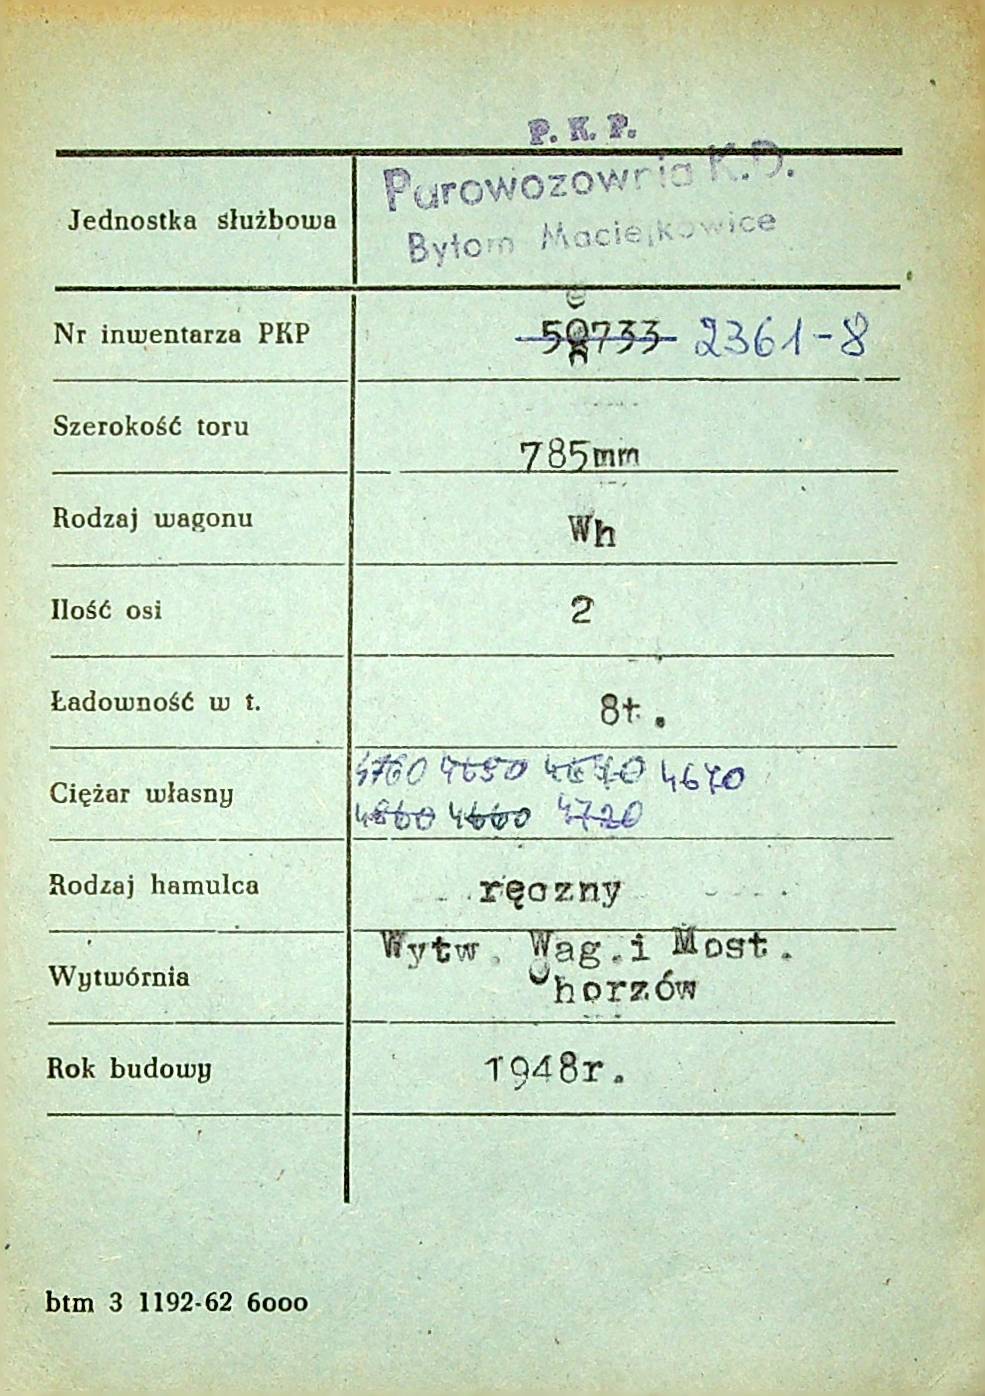 P. K. P.
Parowozownia K.D.
Jednostka służbowa
Bytom Maciejkowice
Nr inwentarza PKP 50733 2361-8
Szerokość toru
785mm
Rodzaj wagonu Wh
Ilość osi 2
Ładowność w t. 8t.
4760 4650 4670
Ciężar własny
4860 4660 4720
Rodzaj hamulca ręczny
Wytw. Wag.i Most.
Wytwórnia Chorzów
Rok budowy 1948r.
btm 3 1192-62 6000